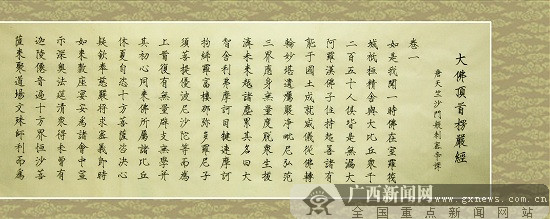 大佛頂首楞嚴經
唐天竺沙門般剌蜜帝譯
卷一
如是我聞一時佛在室羅筏
城祇桓精舍與大比丘衆千
二百五十人俱皆是無漏大
阿羅漢佛子住持超善諸有
能于國土成就威儀從佛轉
輪妙堪遺囑嚴淨毗尼弘範
三界應身無量度脫衆生拔
濟未來越諸塵累其名曰大
智舍利弗摩訶目犍連摩訶
拘絺羅富樓那彌多羅尼子
須菩提優波尼沙陀等而爲
上首復有無量辟支無學并
其初心同來佛所屬諸比丘
休夏自恣十方菩薩咨決心
疑欽奉慈嚴將求密義即時
如來敷座宴安爲諸會中宣
示深奧法筵清衆得未曾有
迦陵僊音遍十方界恒沙菩
薩來聚道場文殊師利而爲
广西新闻网
www.gxnews.com.cn
全国重点新闻网站